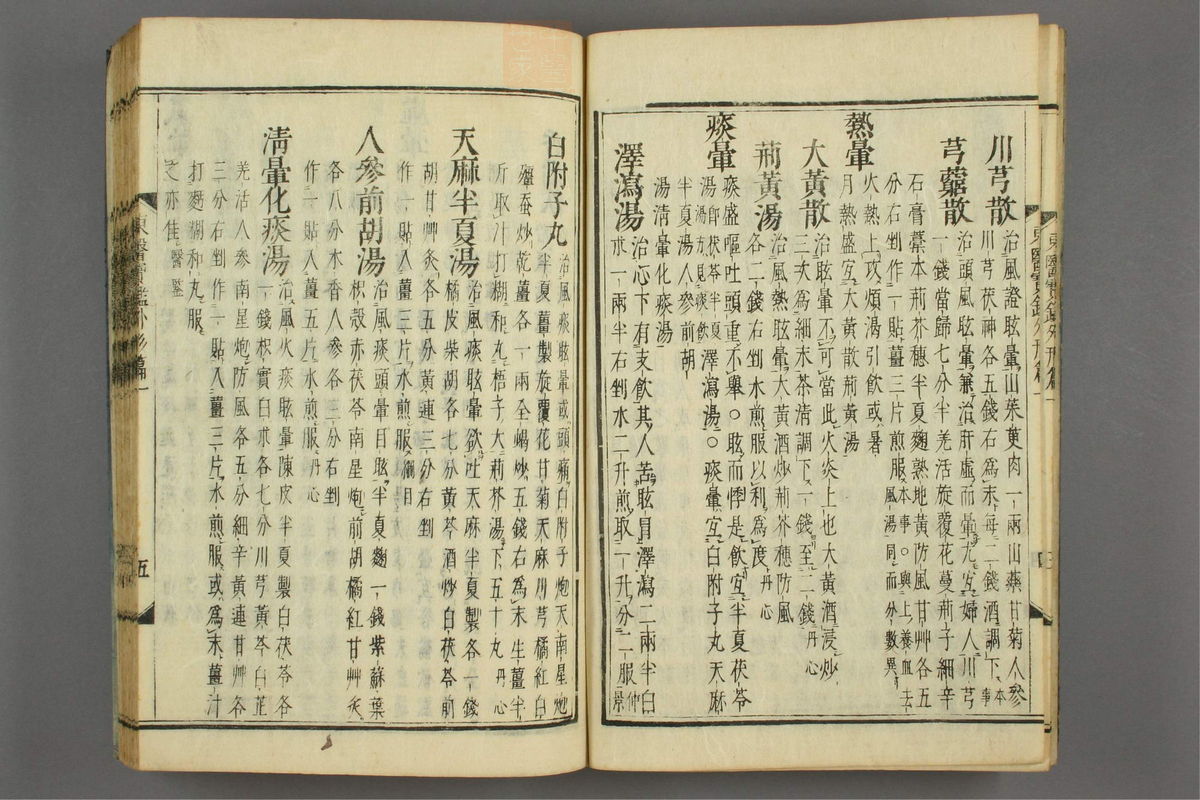 川芎散治風證眩暈山茱萸肉一兩山藥甘菊人參
川芎茯神各五錢右爲末每二錢酒調下本事
芎藭散治頭風眩暈兼治肝虛而暈尤宜婦人川芎
一錢當歸七分半羌活旋覆花蔓荊子細辛
石膏藁本荊芥穗半夏麴熟地黃防風甘艸各五
分右剉作一貼薑三片煎服本事○與上養血去風湯同而分數異
熱暈
火熱上攻煩渴引飲或暑
月熱盛宜大黃散荊黃湯
大黃散治眩暈不可當此火炎上也大黃酒浸炒
三次爲細末茶淸調下一錢至二錢丹心
荊黃湯治風熱眩暈大黃酒炒荊芥穗防風
各二錢右剉水煎服以利爲度丹心
痰暈
痰盛嘔吐頭重不擧○眩而悸是飮宜半夏茯苓
湯卽茯苓半夏湯方見痰飮澤瀉湯○痰暈宜白附子丸天麻
半夏湯人參前胡
湯淸暈化痰湯
澤瀉湯治心下有支飮其人苦眩冒澤瀉二兩半白
朮一兩半右剉水二升煎取一升分二服仲景
白附子丸治風痰眩暈或頭痛白附子炮天南星炮
半夏薑製旋覆花甘菊天麻川芎橘紅白
殭蠶炒乾薑各一兩全蝎炒五錢右爲末生薑半
斤取汁打糊和丸梧子大荊芥湯下五十丸丹心
天麻半夏湯治風痰眩暈欲吐天麻半夏製各一錢
橘皮柴胡各七分黃芩酒炒白茯苓前
胡甘艸炙各五分黃連三分右剉
作一貼入薑三片水煎服綱目
人參前胡湯治風痰頭暈目眩半夏麴一錢紫蘇葉
枳殼赤茯苓南星炮前胡橘紅甘艸炙
各八分木香人參各三分右剉
作一貼入薑五片水煎服丹心
淸暈化痰湯治風火痰眩暈陳皮半夏製白茯苓各
一錢枳實白朮各七分川芎黃芩白芷
羌活人參南星炮防風各五分細辛黃連甘艸各
三分右剉作一貼入薑三片水煎服或爲末薑汁
打麪糊和丸服
之亦佳醫鑒
東醫寶鑑外形篇一
五